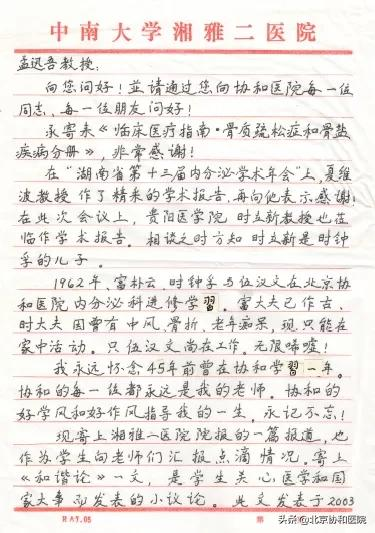 中南大学湘雅二医院
孟迅吾教授:
向您问好！並请通过您向协和医院每一位
同志、每一位朋友问好！
承寄来《临床医疗指南·骨质疏松症和骨盐
疾病分册》，非常感谢！
在“湖南省第十三届内分泌学术年会”上，夏维
波教授作了精采的学术报告，再向他表示感谢！
在此次会议上，贵阳医学院时立新教授也莅
临作学术报告。相谈之时方知时立新是时钟
孚的儿子。
1962年、富朴云、时钟孚与伍汉文在北京协
和医院内分泌科进修学習。富大夫已作古、
时大夫因曾有中风、骨折、老年痴呆，现只能在
家中活动。只伍汉文尚在工作。无限唏嘘！
我永远怀念45年前曾在协和学習一年。
协和的每一位都永远是我的老师。协和的
好学风和好作风指导我的一生。永记不忘！
现寄上湘雅二医院院报的一篇报道，也
作为学生向老师们汇报点滴情况。寄上
《和谐论》一文，是学生关心医学和国
家大事而发表的小议论。此文发表于2003
RA7.05 第
头条@北京协和医院